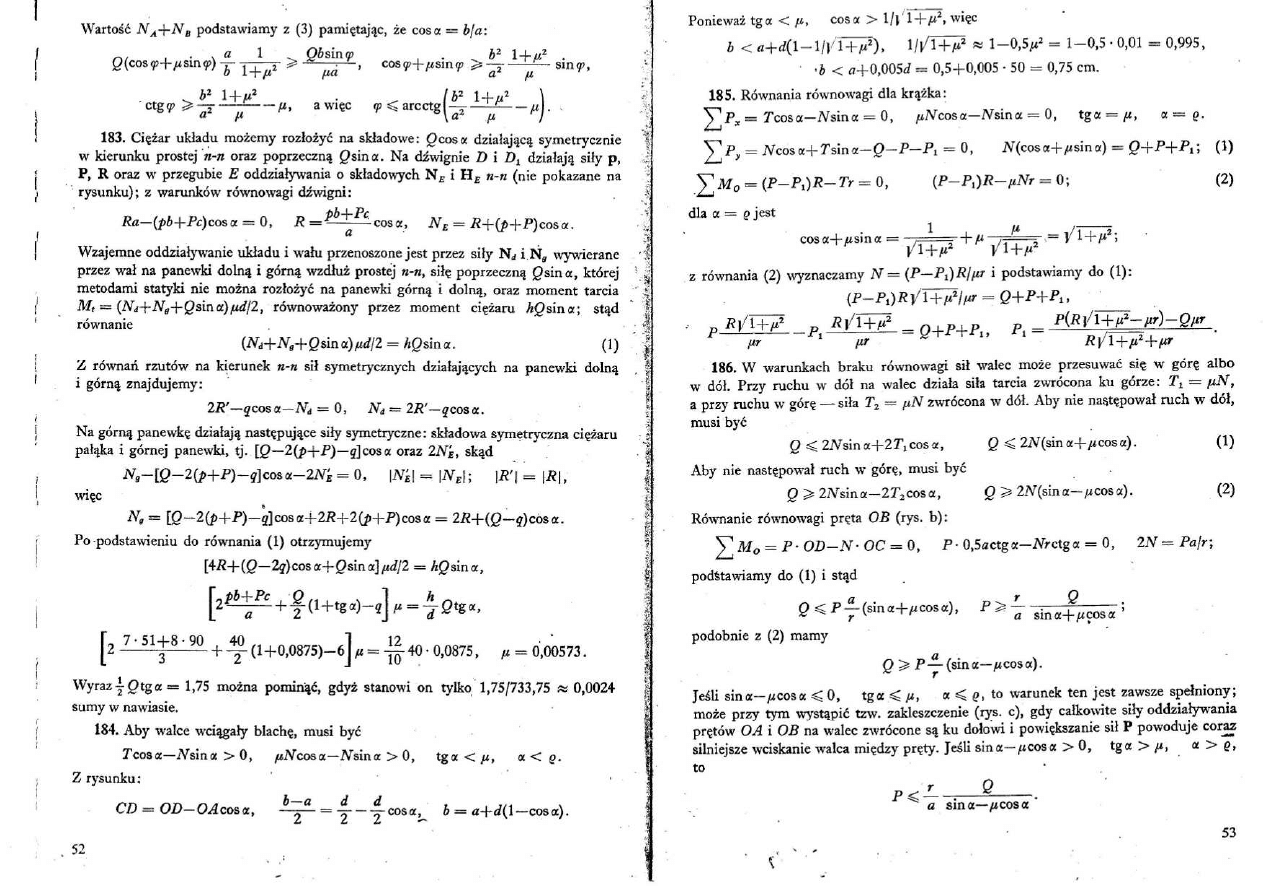 Wartość N_A+N_B podstawiamy z (3) pamiętając, że cos α = b/a:
Q(cos φ+μ sin φ) a/b · 1/(1+μ²) ⩾ Qb sin φ/μa, cos φ+μ sin φ ⩾ b²/a² · (1+μ²)/μ · sin φ,
ctg φ ⩾ b²/a² · (1+μ²)/μ − μ, a więc φ ⩽ arcctg(b²/a² · (1+μ²)/μ − μ).
183. Ciężar układu możemy rozłożyć na składowe: Q cos α działającą symetrycznie
w kierunku prostej n-n oraz poprzeczną Q sin α. Na dźwignie D i D₁ działają siły p,
P, R oraz w przegubie E oddziaływania o składowych N_E i H_E n-n (nie pokazane na
rysunku); z warunków równowagi dźwigni:
Ra−(pb+Pc)cos α = 0, R = (pb+Pc)/a · cos α, N_E = R+(p+P)cos α.
Wzajemne oddziaływanie układu i wału przenoszone jest przez siły N_d i N_g wywierane
przez wał na panewki dolną i górną wzdłuż prostej n-n, siłę poprzeczną Q sin α, której
metodami statyki nie można rozłożyć na panewki górną i dolną, oraz moment tarcia
M_t = (N_d+N_g+Q sin α)μd/2, równoważony przez moment ciężaru hQ sin α; stąd
równanie
(N_d+N_g+Q sin α)μd/2 = hQ sin α. (1)
Z równań rzutów na kierunek n-n sił symetrycznych działających na panewki dolną
i górną znajdujemy:
2R′−q cos α−N_d = 0, N_d = 2R′−q cos α.
Na górną panewkę działają następujące siły symetryczne: składowa symetryczna ciężaru
pałąka i górnej panewki, tj. [Q−2(p+P)−q]cos α oraz 2N′_E, skąd
N_g−[Q−2(p+P)−q]cos α−2N′_E = 0, |N′_E| = |N_E|; |R′| = |R|,
więc
N_g = [Q−2(p+P)−q]cos α+2R+2(p+P)cos α = 2R+(Q−q)cos α.
Po podstawieniu do równania (1) otrzymujemy
[4R+(Q−2q)cos α+Q sin α]μd/2 = hQ sin α,
[2 (pb+Pc)/a + Q/2 (1+tg α)−q] μ = h/d Q tg α,
[2 (7·51+8·90)/3 + 40/2 (1+0,0875)−6] μ = 12/10 40·0,0875, μ = 0,00573.
Wyraz ½ Q tg α = 1,75 można pominąć, gdyż stanowi on tylko 1,75/733,75 ≈ 0,0024
sumy w nawiasie.
184. Aby walce wciągały blachę, musi być
T cos α−N sin α > 0, μN cos α−N sin α > 0, tg α < μ, α < ϱ.
Z rysunku:
CD = OD−OA cos α, (b−a)/2 = d/2 − d/2 cos α, b = a+d(1−cos α).
52
Ponieważ tg α < μ, cos α > 1/√(1+μ²), więc
b < a+d(1−1/√(1+μ²)), 1/√(1+μ²) ≈ 1−0,5μ² = 1−0,5·0,01 = 0,995,
b < a+0,005d = 0,5+0,005·50 = 0,75 cm.
185. Równania równowagi dla krążka:
∑P_x = T cos α−N sin α = 0, μN cos α−N sin α = 0, tg α = μ, α = ϱ.
∑P_y = N cos α+T sin α−Q−P−P₁ = 0, N(cos α+μ sin α) = Q+P+P₁; (1)
∑M_O = (P−P₁)R−Tr = 0, (P−P₁)R−μNr = 0; (2)
dla α = ϱ jest
cos α+μ sin α = 1/√(1+μ²) + μ μ/√(1+μ²) = √(1+μ²);
z równania (2) wyznaczamy N = (P−P₁)R/μr i podstawiamy do (1):
(P−P₁)R√(1+μ²)/μr = Q+P+P₁,
P R√(1+μ²)/μr − P₁ R√(1+μ²)/μr = Q+P+P₁, P₁ = (P(R√(1+μ²)−μr)−Qμr)/(R√(1+μ²)+μr).
186. W warunkach braku równowagi sił walec może przesuwać się w górę albo
w dół. Przy ruchu w dół na walec działa siła tarcia zwrócona ku górze: T₁ = μN,
a przy ruchu w górę — siła T₂ = μN zwrócona w dół. Aby nie następował ruch w dół,
musi być
Q ⩽ 2N sin α+2T₁ cos α, Q ⩽ 2N(sin α+μ cos α). (1)
Aby nie następował ruch w górę, musi być
Q ⩾ 2N sin α−2T₂ cos α, Q ⩾ 2N(sin α−μ cos α). (2)
Równanie równowagi pręta OB (rys. b):
∑M_O = P·OD−N·OC = 0, P·0,5a ctg α−Nr ctg α = 0, 2N = Pa/r;
podstawiamy do (1) i stąd
Q ⩽ P a/r (sin α+μ cos α), P ⩾ r/a · Q/(sin α+μ cos α);
podobnie z (2) mamy
Q ⩾ P a/r (sin α−μ cos α).
Jeśli sin α−μ cos α ⩽ 0, tg α ⩽ μ, α ⩽ ϱ, to warunek ten jest zawsze spełniony;
może przy tym wystąpić tzw. zakleszczenie (rys. c), gdy całkowite siły oddziaływania
prętów OA i OB na walec zwrócone są ku dołowi i powiększanie sił P powoduje coraz
silniejsze wciskanie walca między pręty. Jeśli sin α−μ cos α > 0, tg α > μ, α > ϱ,
to
P ⩽ r/a · Q/(sin α−μ cos α).
53